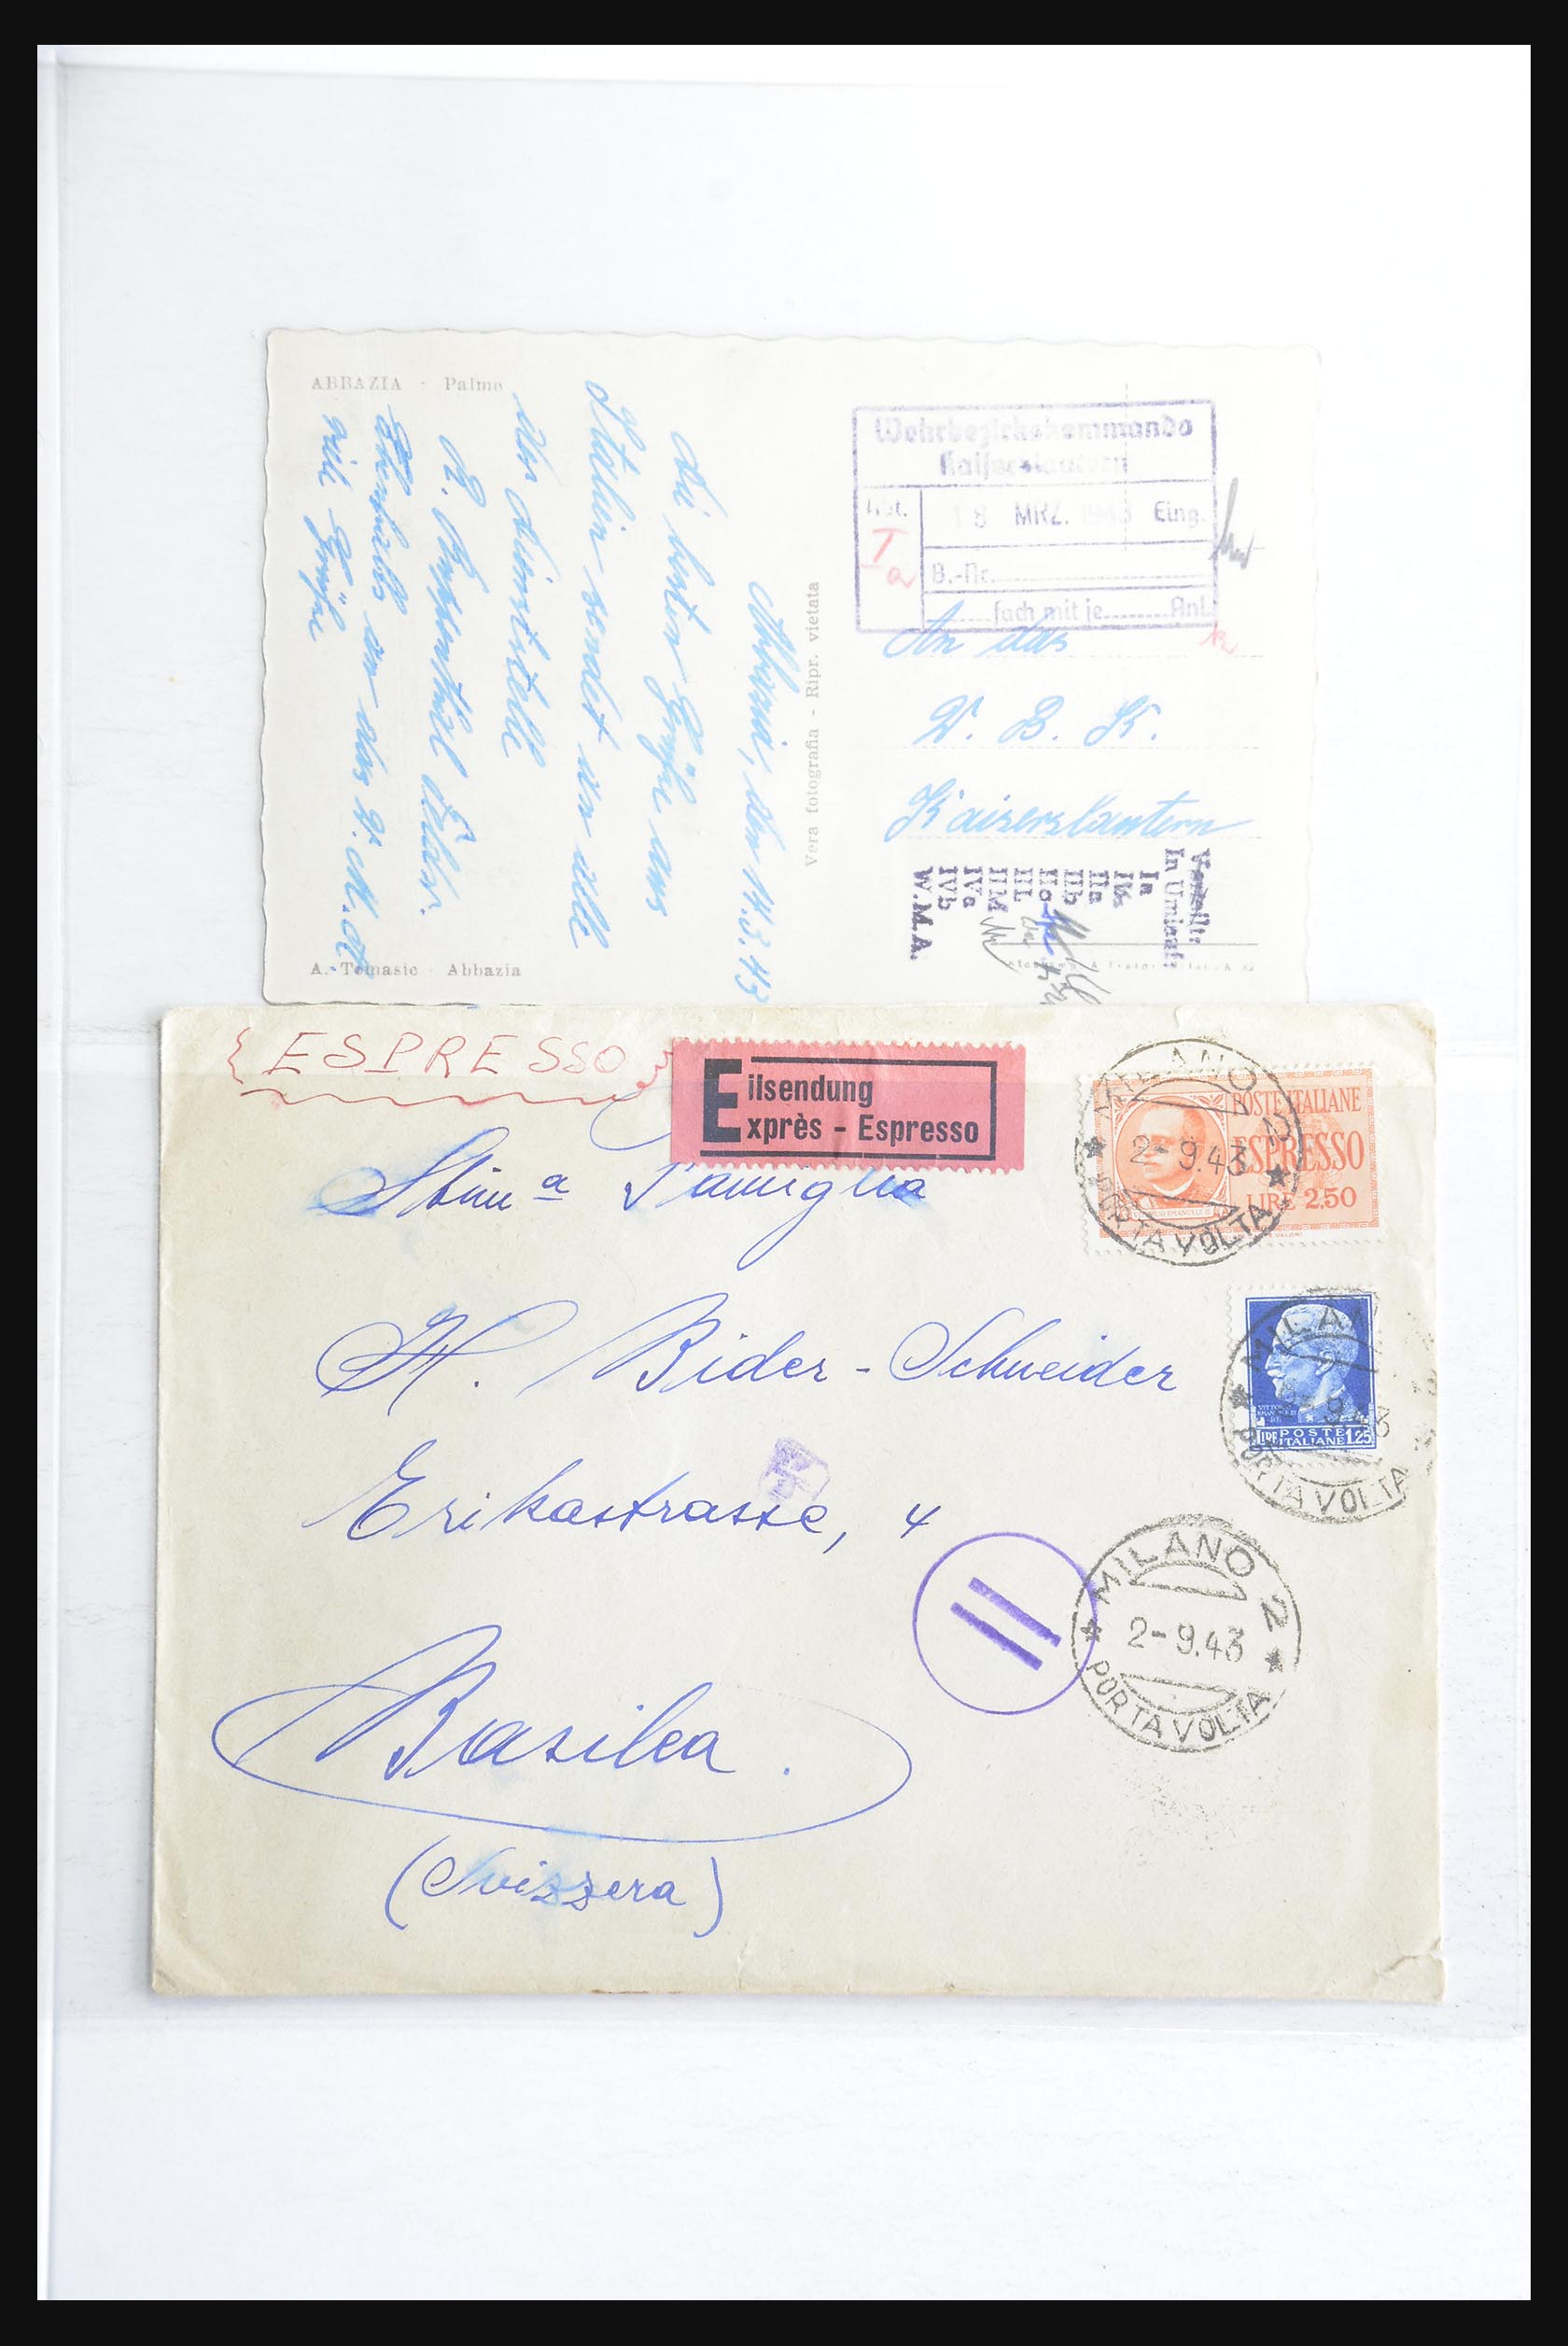 ABBAZIA - Palme
Abbazia, den 14.3.43
die besten Grüße aus
Italien sendet an alle
der Dienststelle
viele Grüße
Ebenfalls an das W.M.A.
A. Tomasic Abbazia
Vera fotografia - Ripr. vietata
Wehrbezirkskommando
Kaiserslautern
Abt.
18 MRZ. 1943 Eing.
Ia
B.-Nr.
fach mit je Anl.
An das
W. B. K.
Kaiserslautern
Verteilt:
In Umlauf
Ia
Ib
IIa
IIb
IIc
III
IIIM
IVa
IVb
W.M.A.
ESPRESSO
Eilsendung
Exprès - Espresso
Stim.a Famiglia
H. Bider-Schneider
Erikastrasse, 4
Basilea.
(Svizzera)
POSTE ITALIANE
ESPRESSO
LIRE 2.50
MILANO 2
2-9.43
PORTA VOLTA
LIRE POSTE ITALIANE 1.25
MILANO
9.43
PORTA VOLTA
MILANO 2
2-9.43
PORTA VOLTA